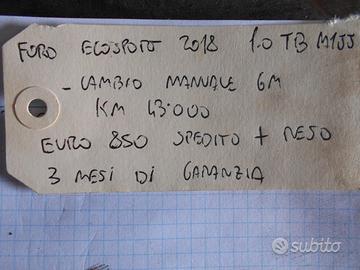 FORD ECOSPORT 2018 1.0 TB M1JJ
- CAMBIO MANUALE 6M
KM 43.000
EURO 850 SPEDITO + RESO
3 MESI DI GARANZIA
subito